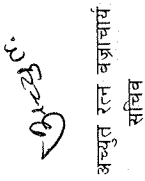 अच्युत रत्न वज्राचार्य
सचिव